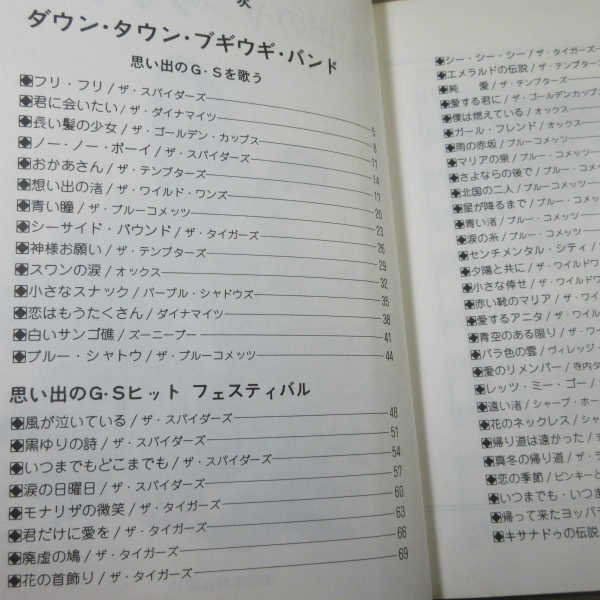 次
ダウン・タウン・ブギウギ・バンド
思い出のG・Sを歌う
フリ・フリ/ザ・スパイダーズ 5
君に会いたい/ザ・ダイナマイツ 8
長い髪の少女/ザ・ゴールデン・カップス 11
ノー・ノー・ボーイ/ザ・スパイダーズ 14
おかあさん/ザ・テンプターズ 17
想い出の渚/ザ・ワイルド・ワンズ 20
青い瞳/ザ・ブルーコメッツ 23
シーサイド・バウンド/ザ・タイガーズ 26
神様お願い/ザ・テンプターズ 29
スワンの涙/オックス 32
小さなスナック/パープル・シャドウズ 35
恋はもうたくさん/ダイナマイツ 38
白いサンゴ礁/ズーニーブー 41
ブルー・シャトウ/ザ・ブルーコメッツ 44
思い出のG・Sヒット フェスティバル
風が泣いている/ザ・スパイダーズ 48
黒ゆりの詩/ザ・スパイダーズ 51
いつまでもどこまでも/ザ・スパイダーズ 54
涙の日曜日/ザ・スパイダーズ 57
モナリザの微笑/ザ・タイガーズ 60
君だけに愛を/ザ・タイガーズ 63
廃虚の鳩/ザ・タイガーズ 66
花の首飾り/ザ・タイガーズ 69
シー・シー・シー/ザ・タイガーズ
エメラルドの伝説/ザ・テンプターズ
純 愛/ザ・テンプターズ
愛する君に/ザ・ゴールデンカップス
僕は燃えている/オックス
ガール・フレンド/オックス
雨の赤坂/ブルーコメッツ
マリアの泉/ブルーコメッツ
さよならの後で/ブルーコメッツ
北国の二人/ブルー・コメッツ
星が降るまで/ブルー・コメッツ
青い渚/ブルー・コメッツ
涙の糸/ブルー・コメッツ
センチメンタル・シティ/
夕陽と共に/ザ・ワイルドワ
小さな倖せ/ザ・ワイルドワ
赤い靴のマリア/ザ・ワイル
愛するアニタ/ザ・ワイルド
青空のある限り/ザ・ワイル
バラ色の雲/ヴィレッジ・
愛のリメンバー/寺内タ
レッツ・ミー・ゴー/
遠い渚/シャープ・ホー
花のネックレス/シャー
帰り道は遠かった/
真冬の帰り道/ザ・ラ
恋の季節/ピンキーと
いつまでも・いつま
帰って来たヨッパラ
キサナドゥの伝説